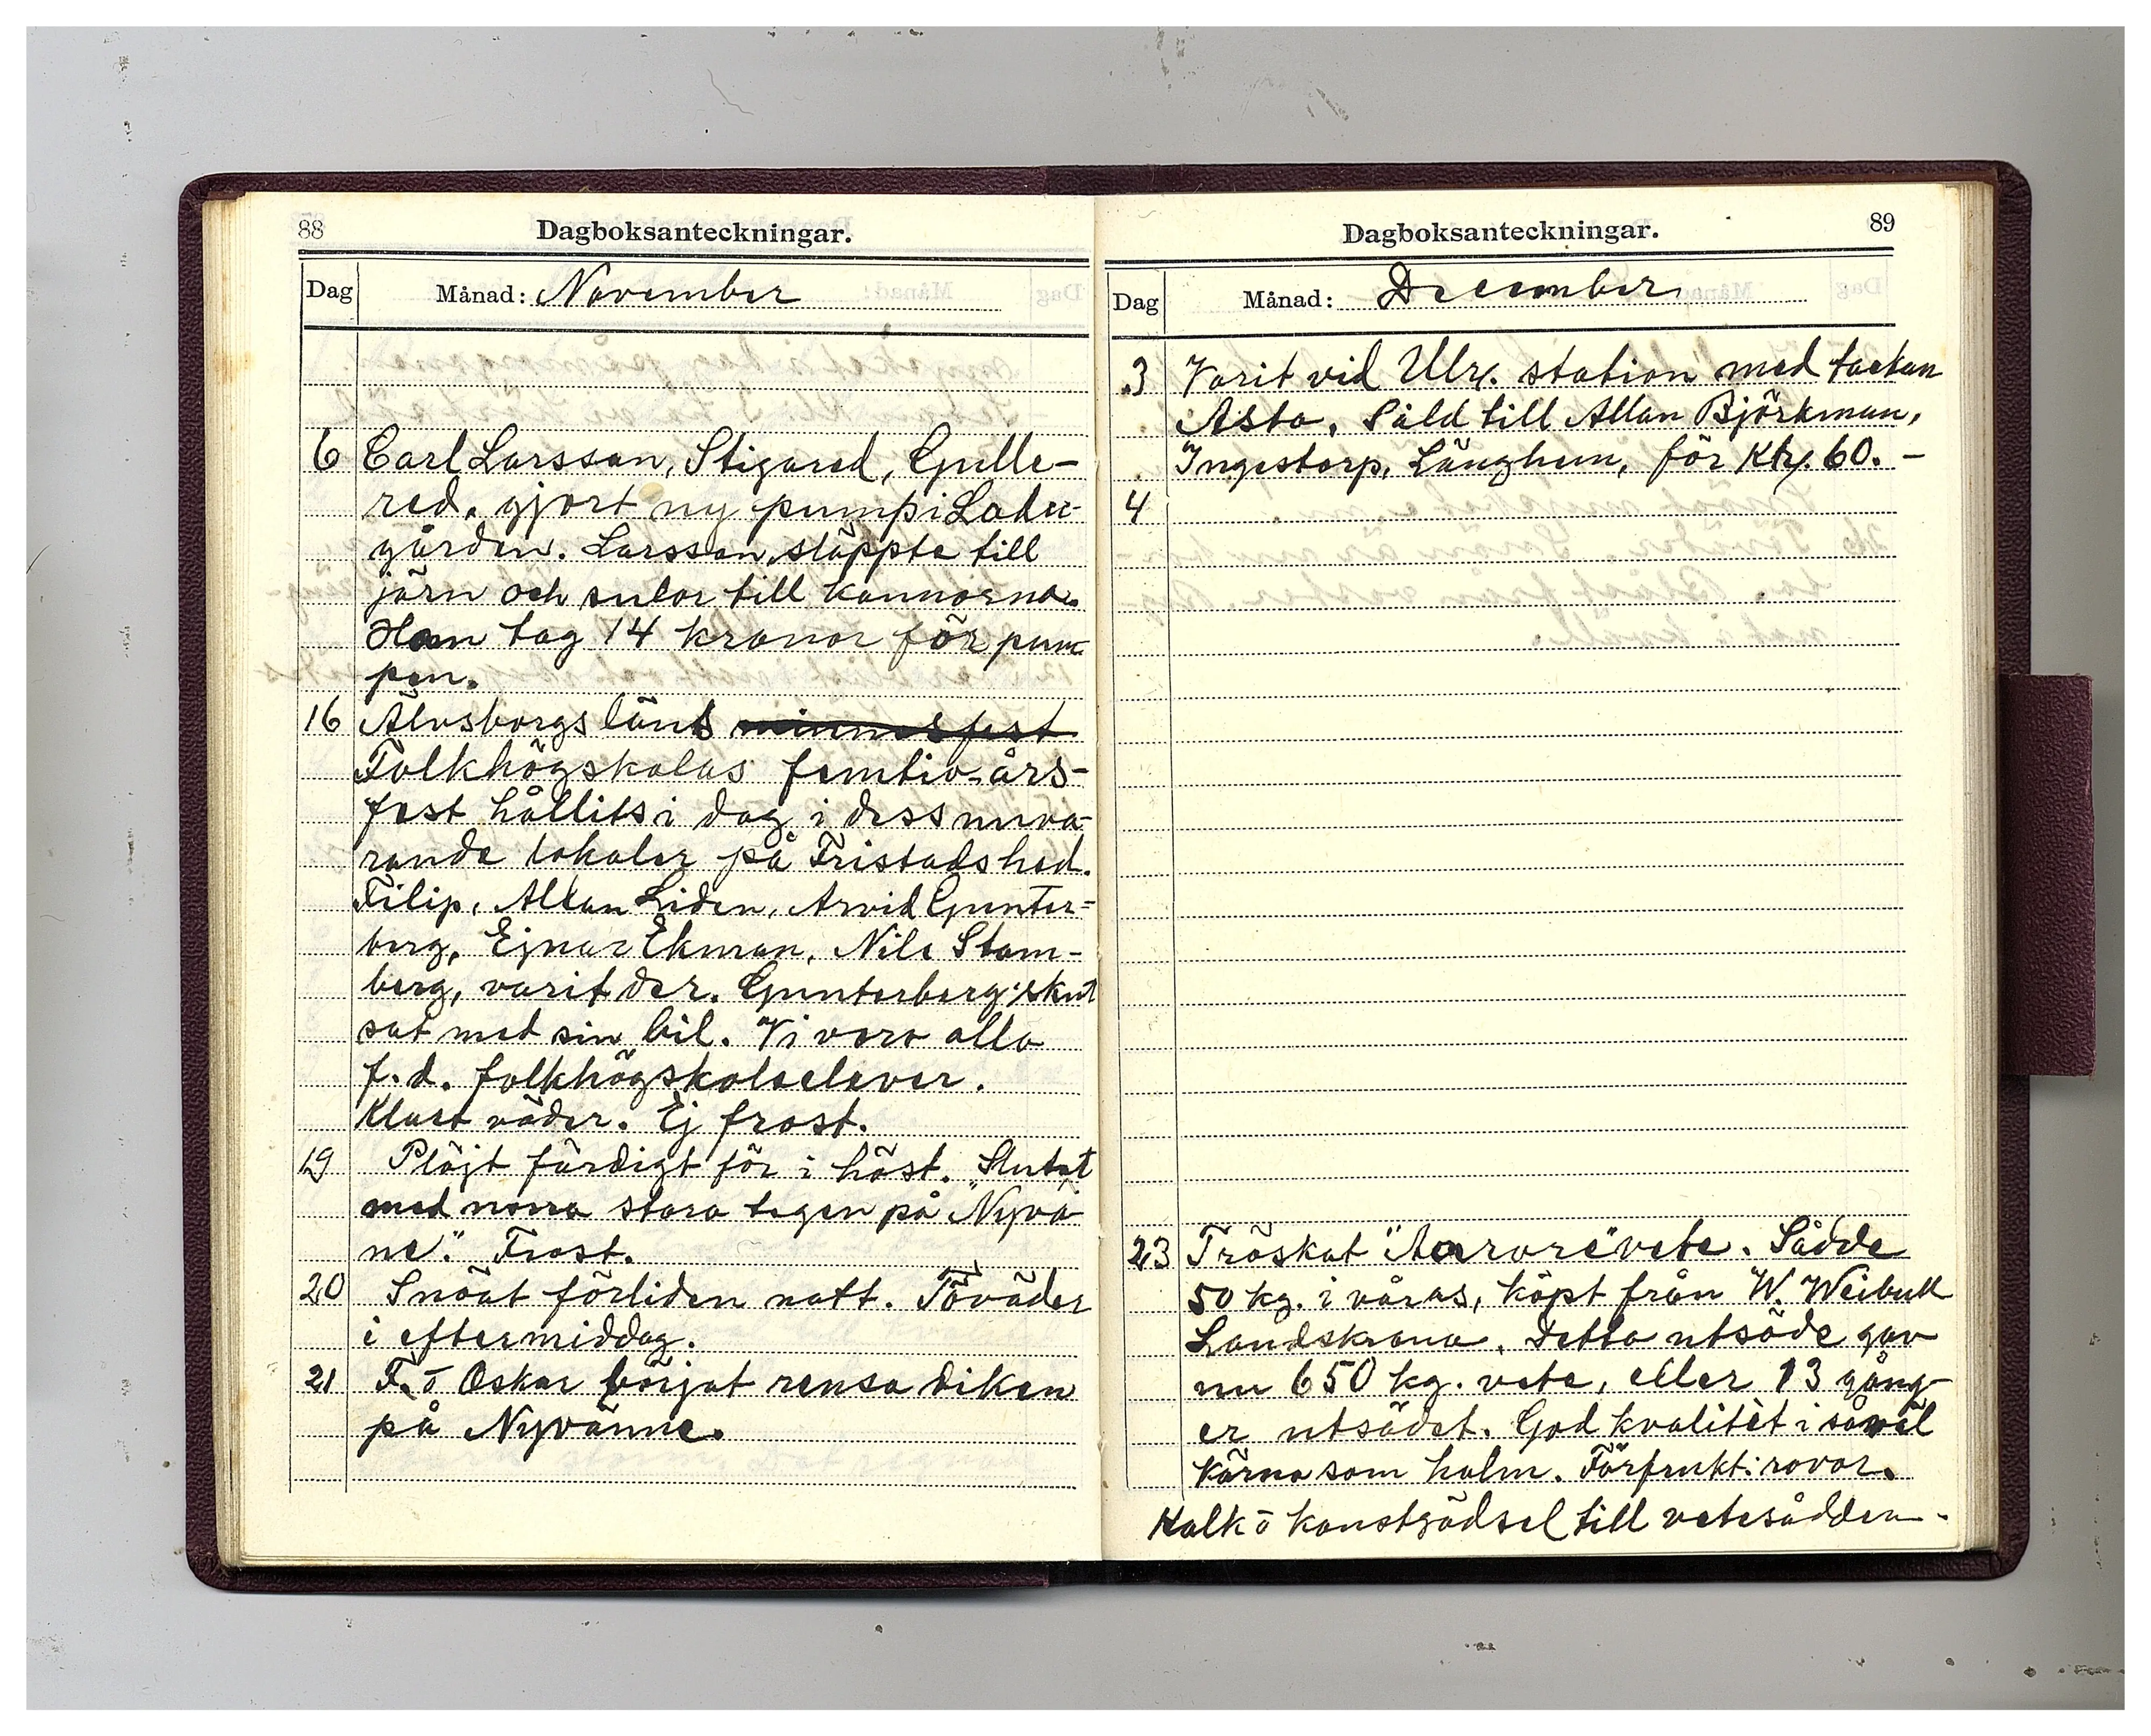 88
Dagboksanteckningar.
Dag Månad: November
6 Carl Larsson, Stigared, Gulle-
red, gjort ny pump i Ladu-
gården. Larsson släppte till
järn och sulor till kannorna.
Han tog 14 kronor för pum-
pen.
16 Älvsborgs läns minnesfest
Folkhögskolas femtio-års-
fest hållits i dag i dess nuva-
rande lokaler på Fristadshed.
Filip, Allan Liden, Arvid Gunter-
berg, Ejnar Ekman, Nils Stom-
berg, varit der. Gunterberg skut
sat med sin bil. Vi voro alla
f.d. folkhögskolelever.
Klart väder. Ej frost.
19 Plöjt färdigt för i höst. Slutat
med norra stora tegen på "Nyvä
ne." Frost.
20 Snöat förliden natt. Töväder
i eftermiddag.
21 F. o Oskar börjat rensa diken
på Nyvänne.
Dagboksanteckningar.
89
Dag Månad: December
3 Varit vid Ulr. station med tackan
Asta. Såld till Allan Björkman,
Ingestorp, Länghem, för Kr. 60.-
4
23 Tröskat "Aurore" vete. Sådde
50 kg. i våras, köpt från W. Weibull
Landskrona. Detta utsäde gav
nu 650 kg. vete, eller 13 gång-
er utsädet. God kvalitèt i såväl
kärna som halm. Förfrukt: rovor.
Kalk o konstgödsel till vetesådden.